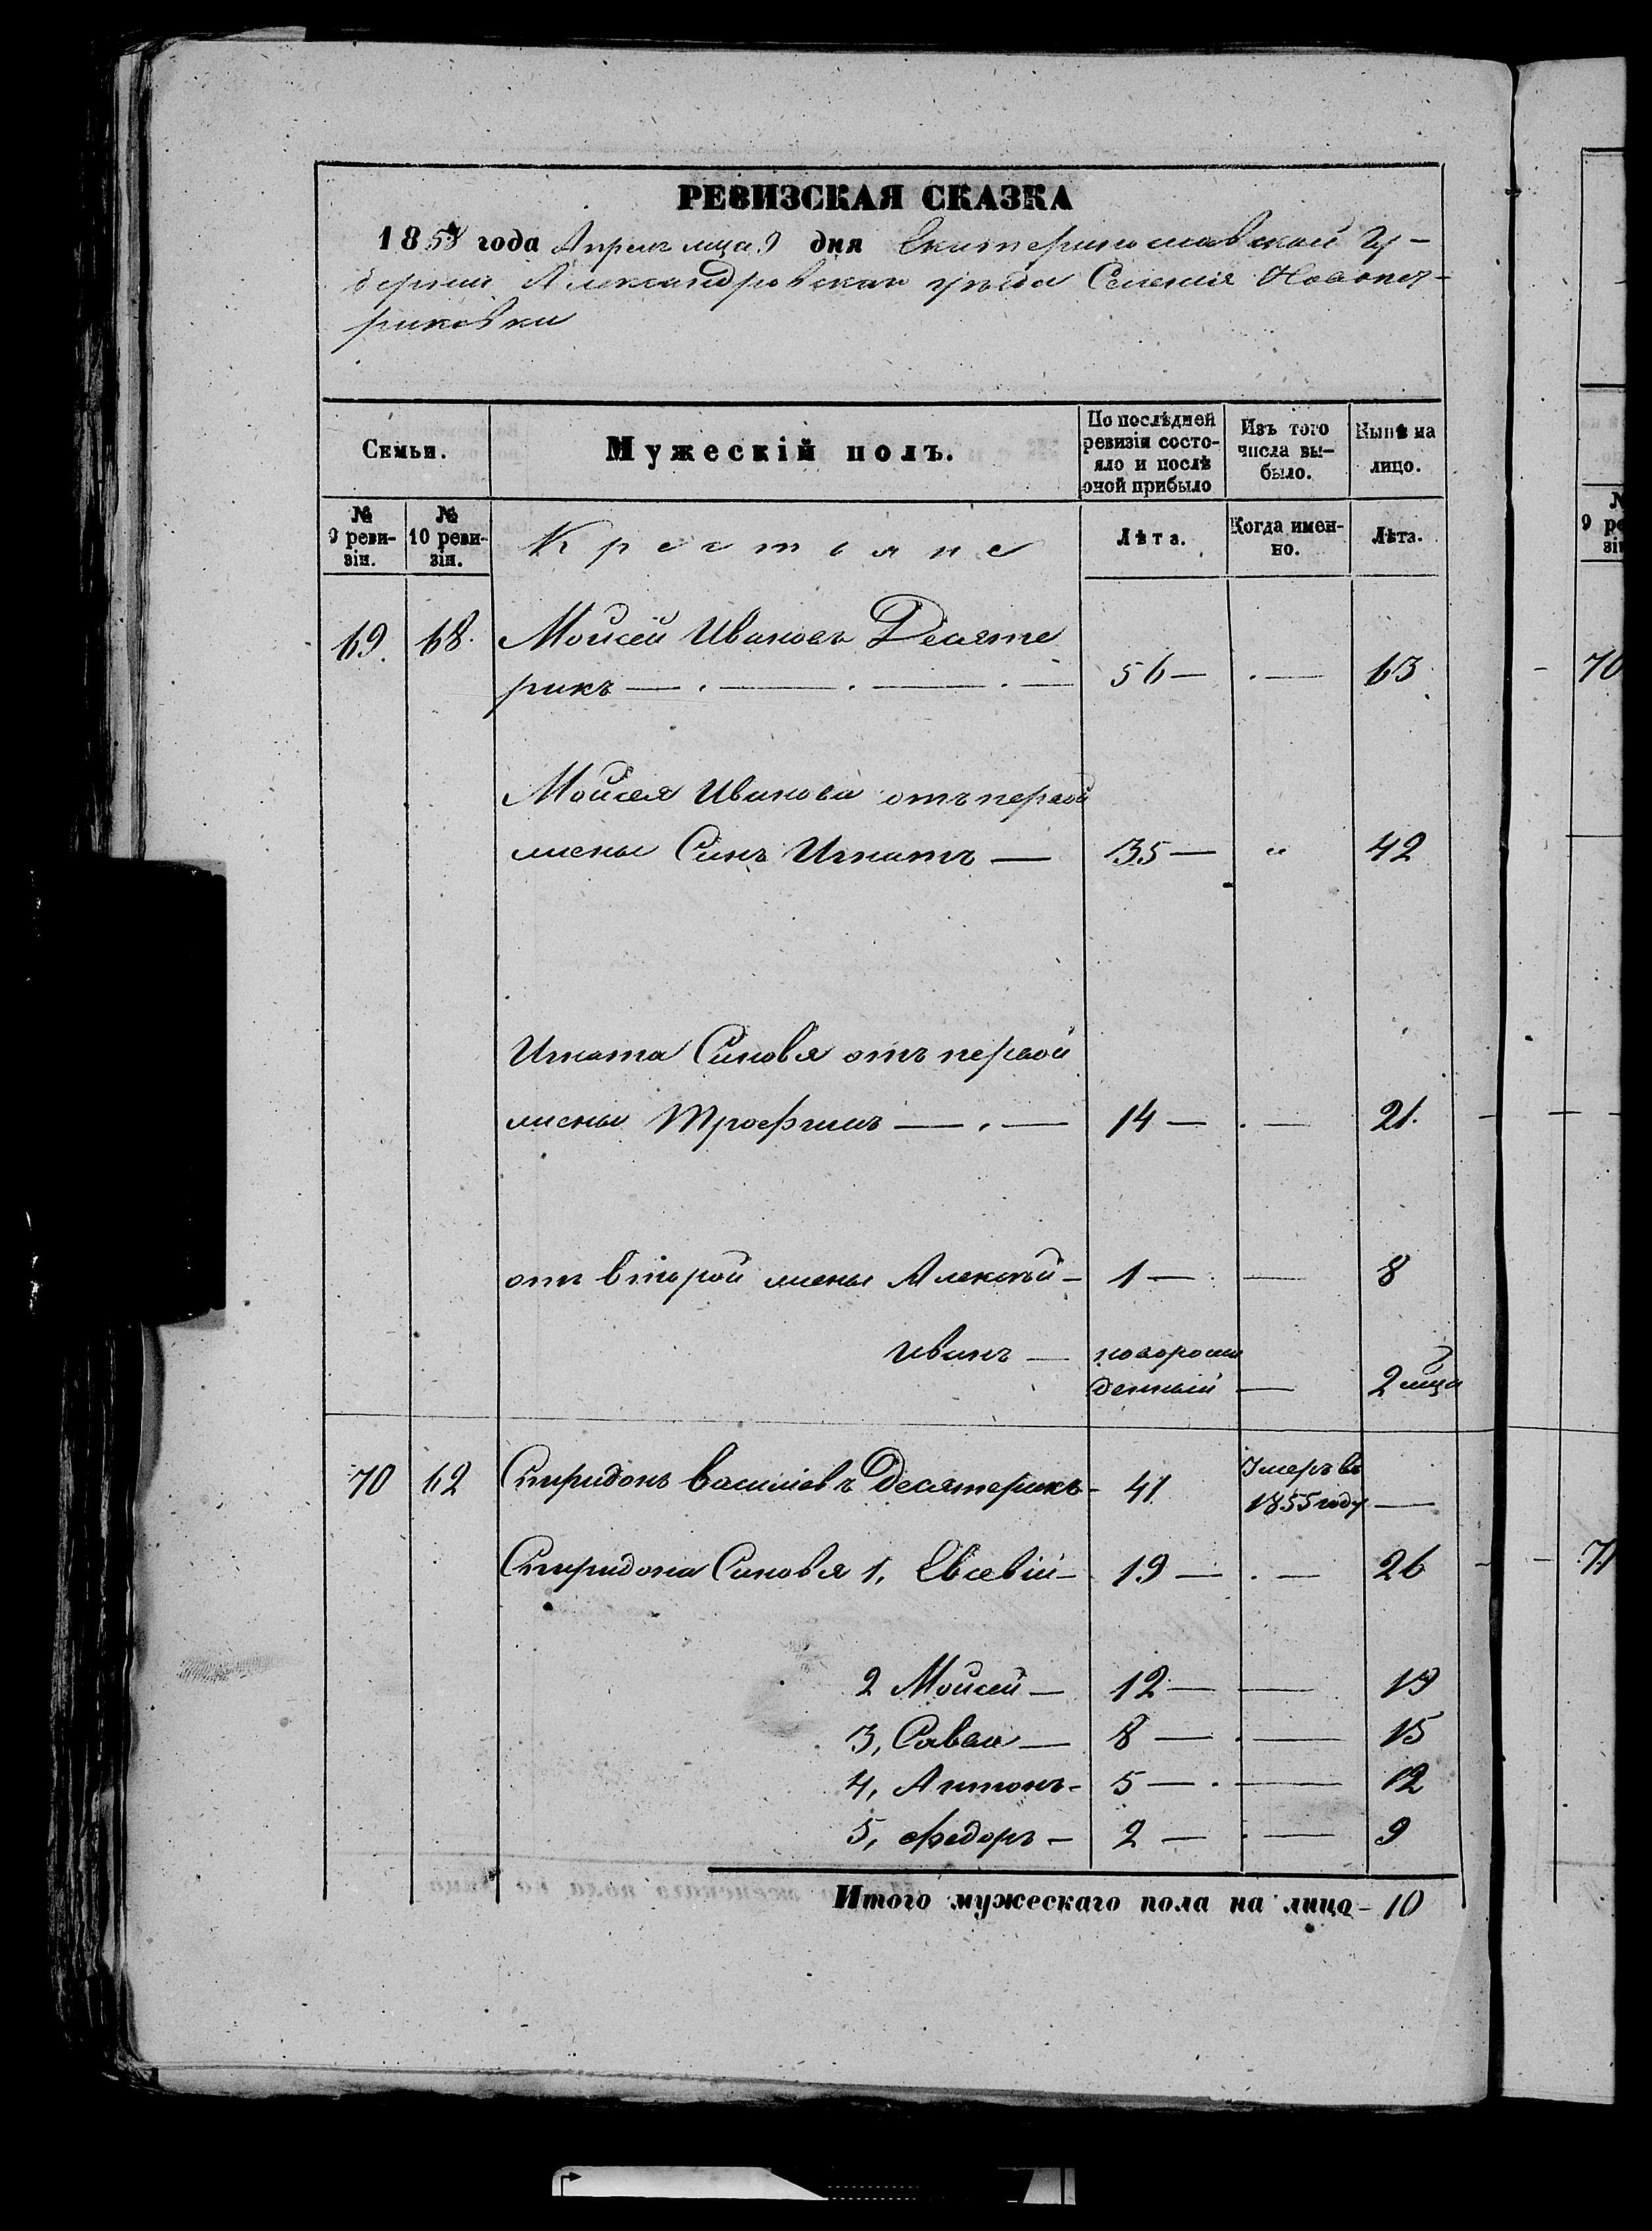 РЕВИЗСКАЯ СКАЗКА
1858 года Апреля мца 9 дня Екатеринославской Гу-
берніи Александровскаго уѣзда Селенія Новопет-
риковки
Семьи.
Мужескій полъ.
По послѣдней ревизіи состо-яло и послѣ оной прибыло
Изъ того числа вы-было.
Нынѣ на лицо.
№ 9 реви-зіи.
№ 10 реви-зіи.
Крестьяне
Лѣта.
Когда имен-но.
Лѣта.
69. 68. Моисей Ивановъ Десяте
рикъ — 56 — — 63
Моисея Иванова отъ первой
жены Синъ Игнатъ — 35 — " 42
Игната Синовя отъ первой
жены Трофимъ — 14 — — 21.
отъ второй жены Алексѣй — 1 — — 8
Иванъ — новорож
денный — 2 мца
70 69 Спиридонъ Василіевъ Десятерикъ - 41 Умеръ въ
1855 году —
Спиридона Синовя 1, Евсевій — 19 — — 26
2 Моисей — 12 — — 19
3, Савва — 8 — — 15
4, Антонъ - 5 — — 12
5, Федоръ — 2 — — 9
Итого мужескаго пола на лицо - 10
№
9 ре
зі
70
71